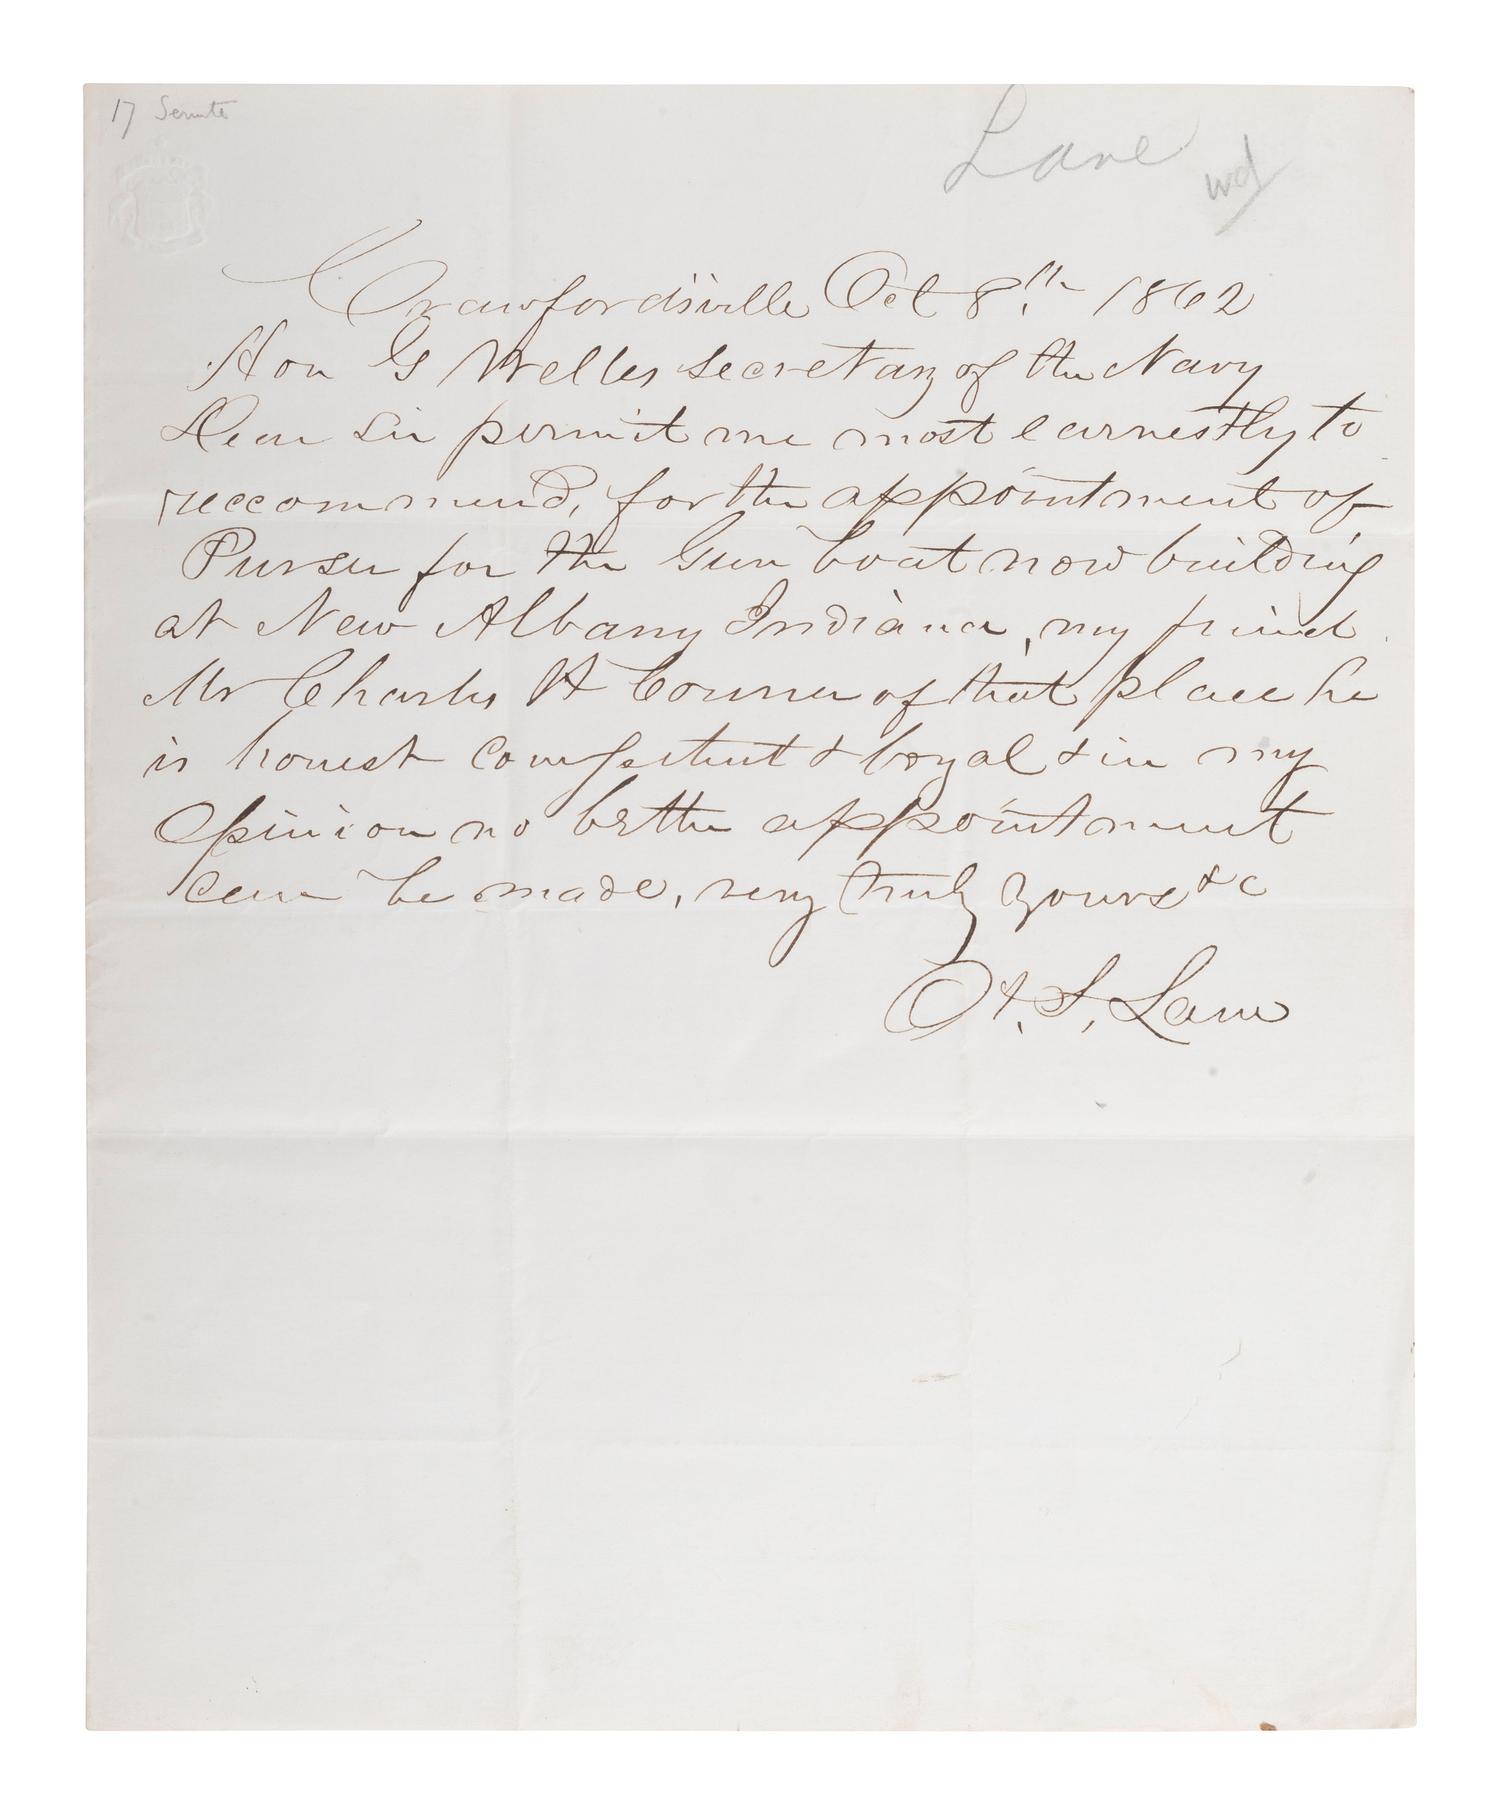 17 Senate
Lane
wd
Crawfordsville Oct 8th 1862
Hon G Welles Secretary of the Navy
Dear Sir permit me most earnestly to
reccommend, for the appointment of
Purser for the Gun boat now building
at New Albany Indiana, my friend
Mr Charles H Conner of that place he
is honest competent & loyal & in my
Opinion no better appointment
can be made, very truly yours &c
H. S. Lane